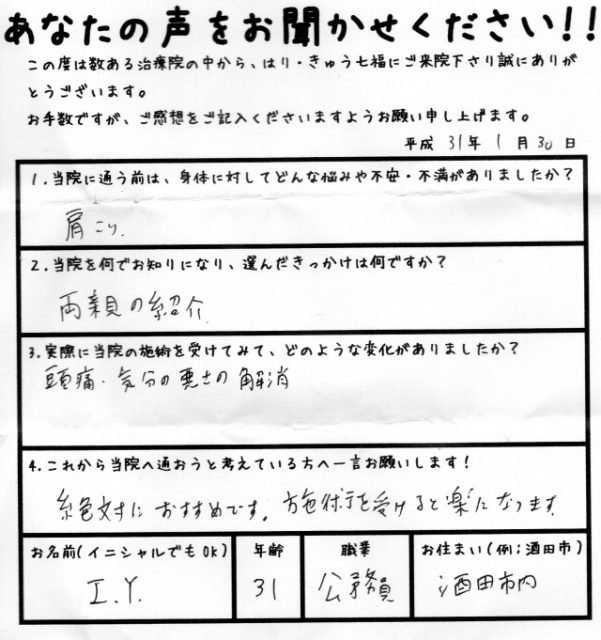 あなたの声をお聞かせください!!
この度は数ある治療院の中から、はり・きゅう七福にご来院下さり誠にありが
とうございます。
お手数ですが、ご感想をご記入くださいますようお願い申し上げます。
平成 31年 1月 30日
1.当院に通う前は、身体に対してどんな悩みや不安・不満がありましたか?
肩こり.
2.当院を何でお知りになり、選んだきっかけは何ですか?
両親の紹介
3.実際に当院の施術を受けてみて、どのような変化がありましたか?
頭痛・気分の悪さの解消
4.これから当院へ通おうと考えている方へ一言お願いします!
絶対におすすめです。施術を受けると楽になります
お名前(イニシャルでもOK)
I.Y.
年齢
31
職業
公務員
お住まい(例:酒田市)
酒田市内